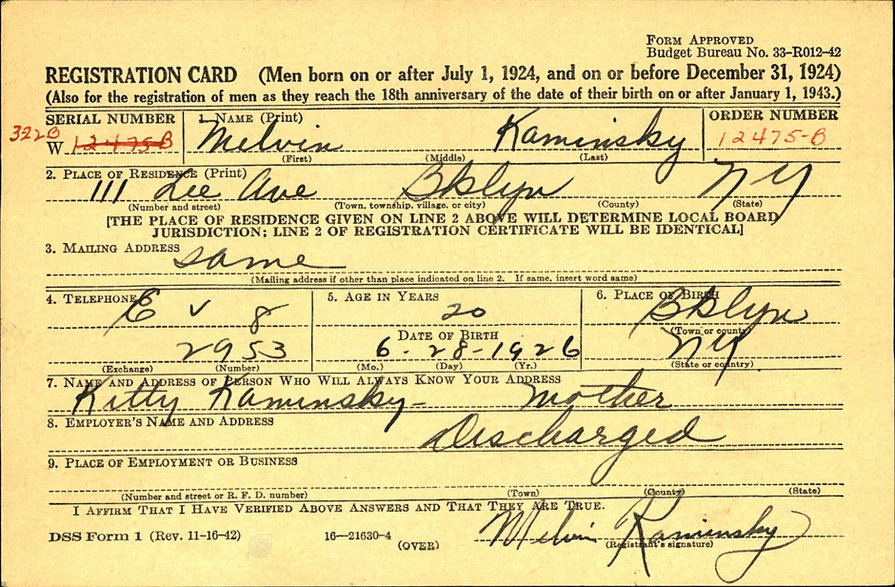 FORM APPROVED
Budget Bureau No. 33-R012-42
REGISTRATION CARD (Men born on or after July 1, 1924, and on or before December 31, 1924)
(Also for the registration of men as they reach the 18th anniversary of the date of their birth on or after January 1, 1943.)
SERIAL NUMBER 1. NAME (Print) ORDER NUMBER
322B
W 12475-B Melvin Kaminsky 12475-B
(First) (Middle) (Last)
2. PLACE OF RESIDENCE (Print)
111 Lee Ave Bklyn NY
(Number and street) (Town, township, village, or city) (County) (State)
[THE PLACE OF RESIDENCE GIVEN ON LINE 2 ABOVE WILL DETERMINE LOCAL BOARD
JURISDICTION; LINE 2 OF REGISTRATION CERTIFICATE WILL BE IDENTICAL]
3. MAILING ADDRESS
same
(Mailing address if other than place indicated on line 2. If same, insert word same)
4. TELEPHONE 5. AGE IN YEARS 6. PLACE OF BIRTH
E v 8 20 Bklyn
DATE OF BIRTH (Town or county)
2953 6-28-1926 NY
(Exchange) (Number) (Mo.) (Day) (Yr.) (State or country)
7. NAME AND ADDRESS OF PERSON WHO WILL ALWAYS KNOW YOUR ADDRESS
Kitty Kaminsky - Mother
8. EMPLOYER'S NAME AND ADDRESS
Discharged
9. PLACE OF EMPLOYMENT OR BUSINESS
(Number and street or R. F. D. number) (Town) (County) (State)
I AFFIRM THAT I HAVE VERIFIED ABOVE ANSWERS AND THAT THEY ARE TRUE.
DSS Form 1 (Rev. 11-16-42) 16—21630-4 (OVER) Melvin Kaminsky
(Registrant's signature)